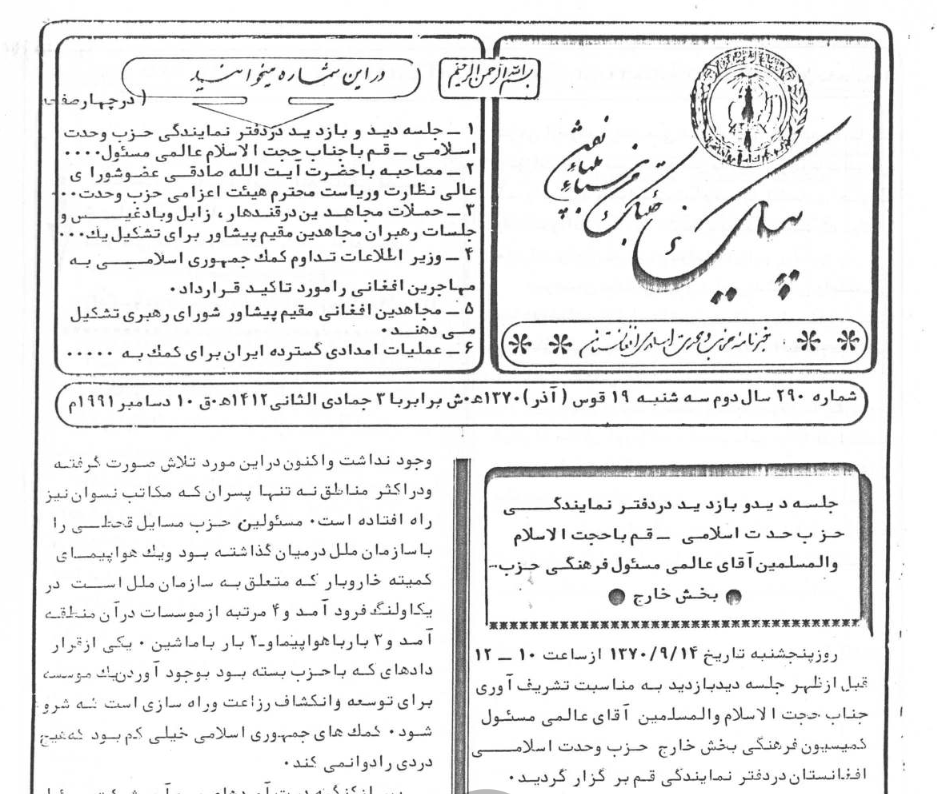 بسم الله الرحمن الرحیم
پیام
نقش
خبرنامه حزب وحدت اسلامی افغانستان
در این شماره میخوانید
(در چهار صفحه
۱ ــ جلسه دید و بازدید دردفتر نمایندگی حزب وحدت
اسلامی ــ قم باجناب حجت الاسلام عالمی مسئول....
۲ ــ مصاحبه باحضرت آیت الله صادقی عضوشورا ی
عالی نظارت وریاست محترم هیئت اعزامی حزب وحدت...
۳ ــ حملات مجاهدین درقندهار ، زابل وبادغیس و
جلسات رهبران مجاهدین مقیم پیشاور برای تشکیل یک...
۴ ــ وزیر اطلاعات تداوم کمک جمهوری اسلامی به
مهاجرین افغانی رامورد تاکید قرارداد.
۵ ــ مجاهدین افغانی مقیم پیشاور شورای رهبری تشکیل
می دهند.
۶ ــ عملیات امدادی گسترده ایران برای کمک به .....
شماره ۲۹۰ سال دوم سه شنبه ۱۹ قوس (آذر) ۱۳۷۰ه.ش برابربا ۳ جمادی الثانی ۱۴۱۲ه.ق ۱۰ دسامبر ۱۹۹۱م
جلسه دیدو بازدید دردفتر نمایندگی
حزب حدت اسلامی ــ قم باحجت الاسلام
والمسلمین آقای عالمی مسئول فرهنگی حزب-
بخش خارج
روزپنجشنبه تاریخ ۱۳۷۰/۹/۱۴ ازساعت ۱۰ ــ ۱۲
قبل ازظهر جلسه دیدبازدید به مناسبت تشریف آوری
جناب حجت الاسلام والمسلمین آقای عالمی مسئول
کمیسیون فرهنگی بخش خارج حزب وحدت اسلامی
افغانستان دردفتر نمایندگی قم بر گزار گردید.
وجود نداشت واکنون دراین مورد تلاش صورت گرفته
ودراکثر مناطق نه تنها پسران که مکاتب نسوان نیز
راه افتاده است. مسئولین حزب مسایل قحطی را
باسازمان ملل درمیان گذاشته بود ویک هواپیمای
کمیته خاروبار که متعلق به سازمان ملل است در
یکاولنگ فرود آمد و۴ مرتبه ازموسسات درآن منطقه
آمد و۳ بارباهواپیماو-۲ بار باماشین . یکی ازقرار
دادهای که باحزب بسته بود بوجود آوردن یک موسسه
برای توسعه وانکشاف زراعت وراه سازی است که شروع
شود. کمک های جمهوری اسلامی خیلی کم بود که هیچ
دردی رادوانمی کند.